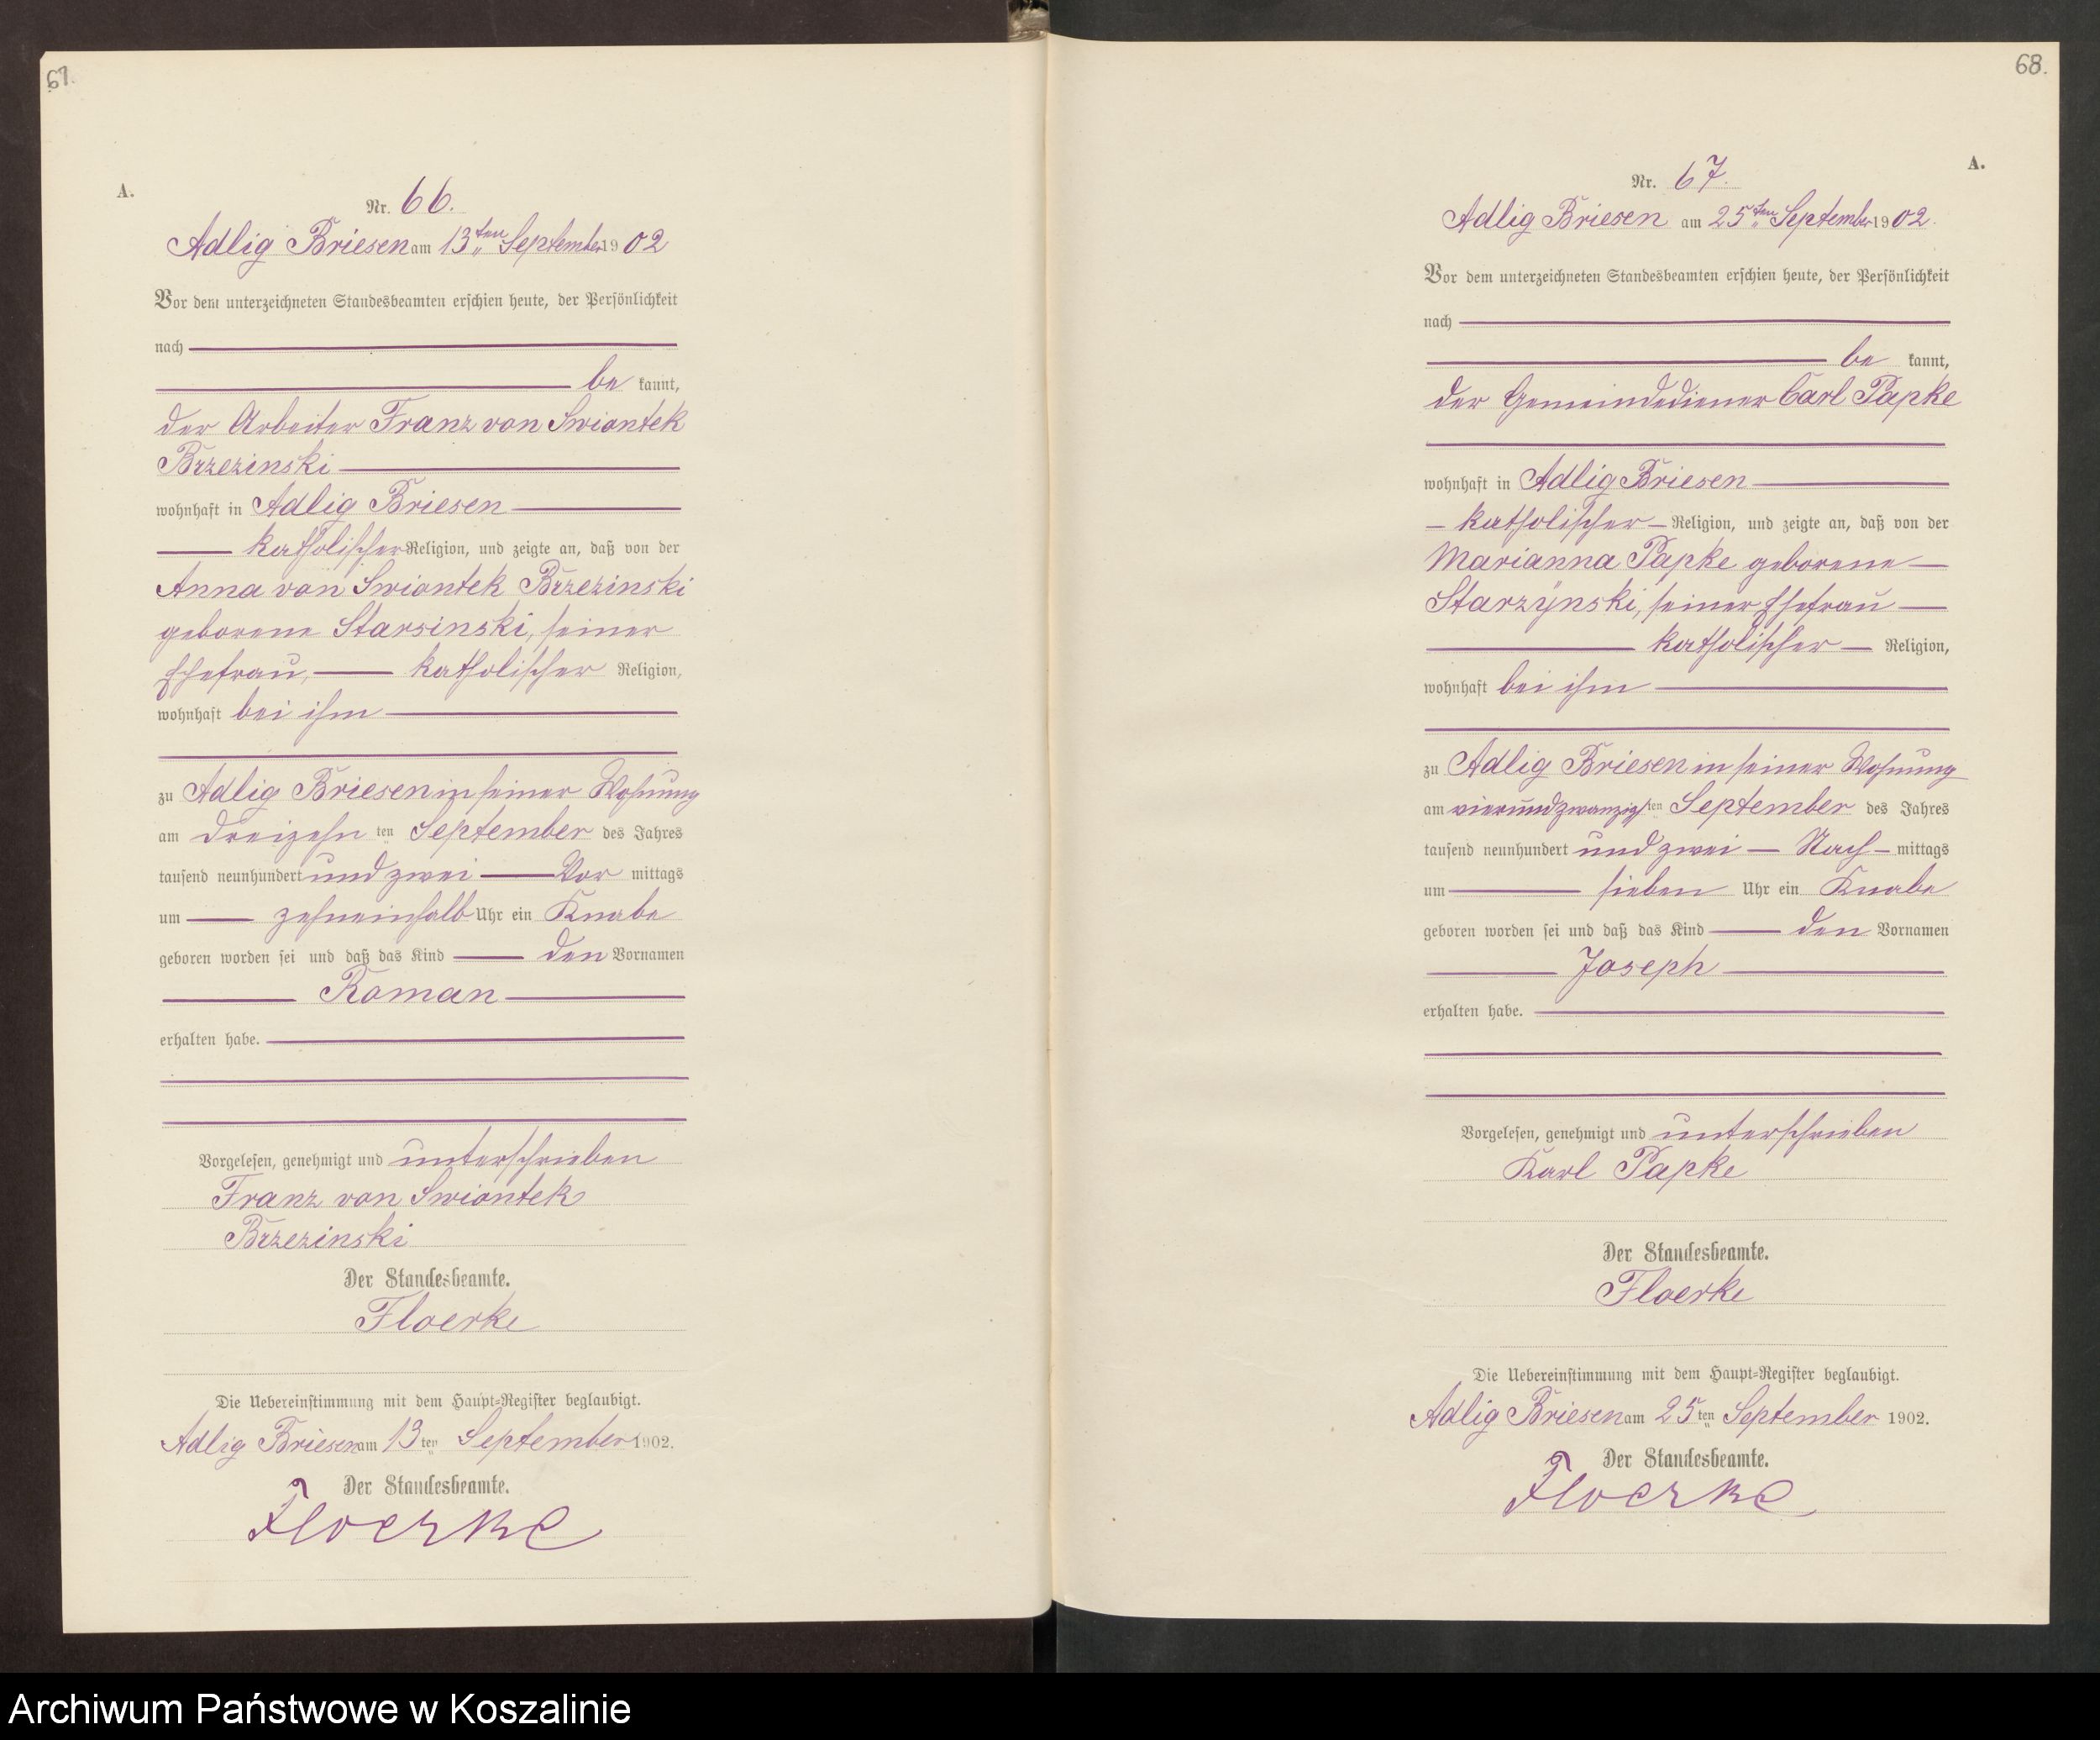 67.
A.
Nr. 66.
Adlig Briesen am 13ten September 1902
Vor dem unterzeichneten Standesbeamten erschien heute, der Persönlichkeit
nach
be kannt,
der Arbeiter Franz von Swiontek
Brzezinski
wohnhaft in Adlig Briesen
katholischer Religion, und zeigte an, daß von der
Anna von Swiontek Brzezinski
geborene Starsinski, seiner
Ehefrau, katholischer Religion,
wohnhaft bei ihm
zu Adlig Briesen in seiner Wohnung
am dreizehn ten September des Jahres
tausend neunhundert und zwei Vor mittags
um zehneinhalb Uhr ein Knabe
geboren worden sei und daß das Kind den Vornamen
Roman
erhalten habe.
Vorgelesen, genehmigt und unterschrieben
Franz von Swiontek
Brzezinski
Der Standesbeamte.
Floerke
Die Uebereinstimmung mit dem Haupt=Register beglaubigt.
Adlig Briesen am 13 ten September 1902.
Der Standesbeamte.
Floerke
68.
A.
Nr. 67.
Adlig Briesen am 25ten September 1902.
Vor dem unterzeichneten Standesbeamten erschien heute, der Persönlichkeit
nach
be kannt,
der Gemeindediener Carl Papke
wohnhaft in Adlig Briesen
katholischer Religion, und zeigte an, daß von der
Marianna Papke geborene
Starzynski, seiner Ehefrau
katholischer Religion,
wohnhaft bei ihm
zu Adlig Briesen in seiner Wohnung
am vierundzwanzigsten September des Jahres
tausend neunhundert und zwei Nach mittags
um sieben Uhr ein Knabe
geboren worden sei und daß das Kind den Vornamen
Joseph
erhalten habe.
Vorgelesen, genehmigt und unterschrieben
Karl Papke
Der Standesbeamte.
Floerke
Die Uebereinstimmung mit dem Haupt=Register beglaubigt.
Adlig Briesen am 25 ten September 1902.
Der Standesbeamte.
Floerke
Archiwum Państwowe w Koszalinie